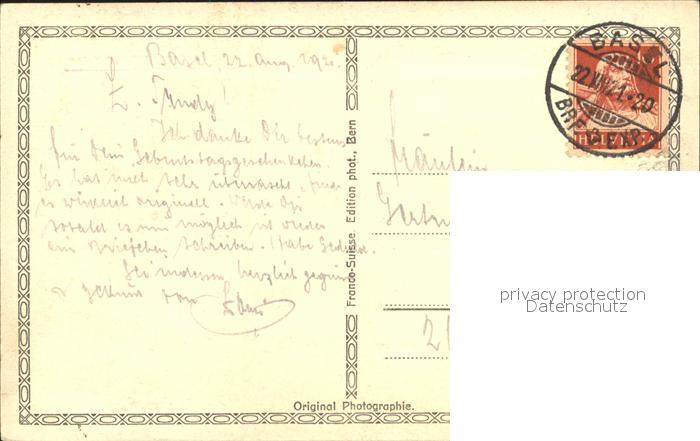 Basel, 22. Aug. 192
L. Trudy!
Ich danke Dir bestens
für Dein Geburtstagsgeschenkchen.
Es hat mich sehr überrascht, finde
es wirklich originell. Werde Dir
sobald es mir möglich ist wieder
ein Briefchen schreiben. Habe Geduld.
Sei indessen herzlich gegrüsst
geküsst von
Franco-Suisse. Edition phot., Bern
Original Photographie.
Fräulein
BASEL
22.
21.-20
BRF. EXP.
HELVETIA
privacy protection
Datenschutz